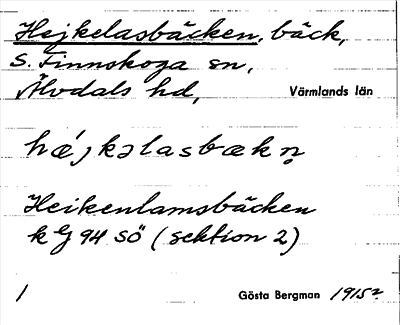 Hejkelasbäcken, bäck,
S. Finnskoga sn,
Älvdals hd, Värmlands län
hǽjkəlasbækn̥
Heikenlamsbäcken
k bl 94 SÖ (sektion 2)
1 Gösta Bergman 1915?